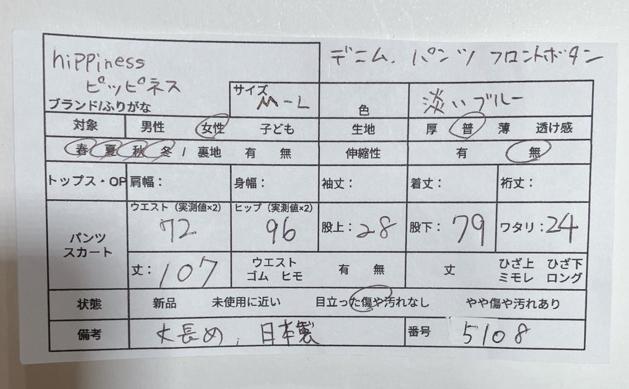 hippiness
ピッピネス
ブランド/ふりがな
デニム. パンツ フロントボタン
サイズ M-L 色 淡いブルー
対象 男性 女性 子ども 生地 厚 普 薄 透け感
春 夏 秋 冬 / 裏地 有 無 伸縮性 有 無
トップス・OP 肩幅： 身幅： 袖丈： 着丈： 裄丈：
パンツ
スカート
ウエスト（実測値×2） 72 ヒップ（実測値×2） 96 股上：28 股下：79 ワタリ：24
丈：107 ウエスト
ゴム ヒモ 有 無 丈 ひざ上 ひざ下
ミモレ ロング
状態 新品 未使用に近い 目立った傷や汚れなし やや傷や汚れあり
備考 丈長め, 日本製 番号 5108